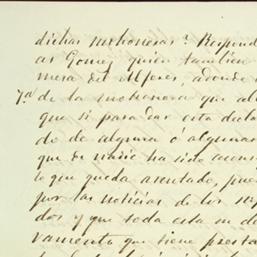 dichas personas? Respond
as Gomez quien tambien
mesa del Alferes, adonde
7a de la que al
que si para dar esta decla
do de alguna ó algunas
que de nadie ha sido acons
lo que queda asentado, pue
por las noticias de los
dos y que toda esta su de
vamento que tiene presta